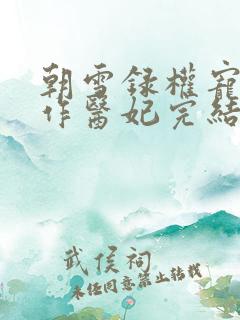 朝雪録權寵
作醫妃完結
武侯祠
未经同意禁止转载